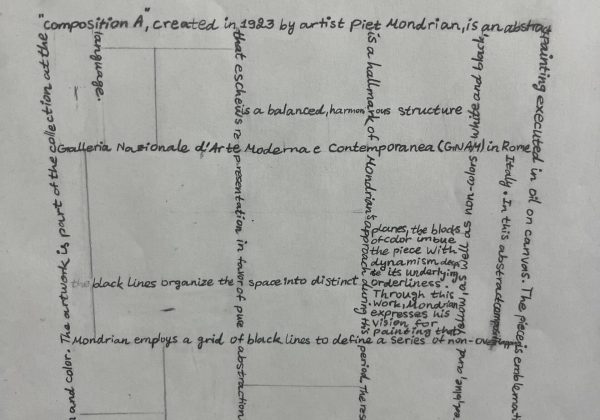 "Composition A", created in 1923 by artist Piet Mondrian, is an abstract
painting executed in oil on canvas. The piece is emblema
and color. The artwork is part of the collection at the
Galleria Nazionale d'Arte Moderna e Contemporanea (GNAM) in Rome
Italy. In this abstract
Mondrian employs a grid of black lines to define a series of
as well as non-colors white and black.
the black lines organize the space into distinct
planes, the blocks
of color imbue
the piece with
dynamism
to its underlying
orderliness.
Through this
work, Mondrian
expresses his
vision for
painting that
is a hallmark of Mondrian's approach during this period. The res
is a balanced, harmonious structure
that eschews representation in favor of pure abstraction
language.